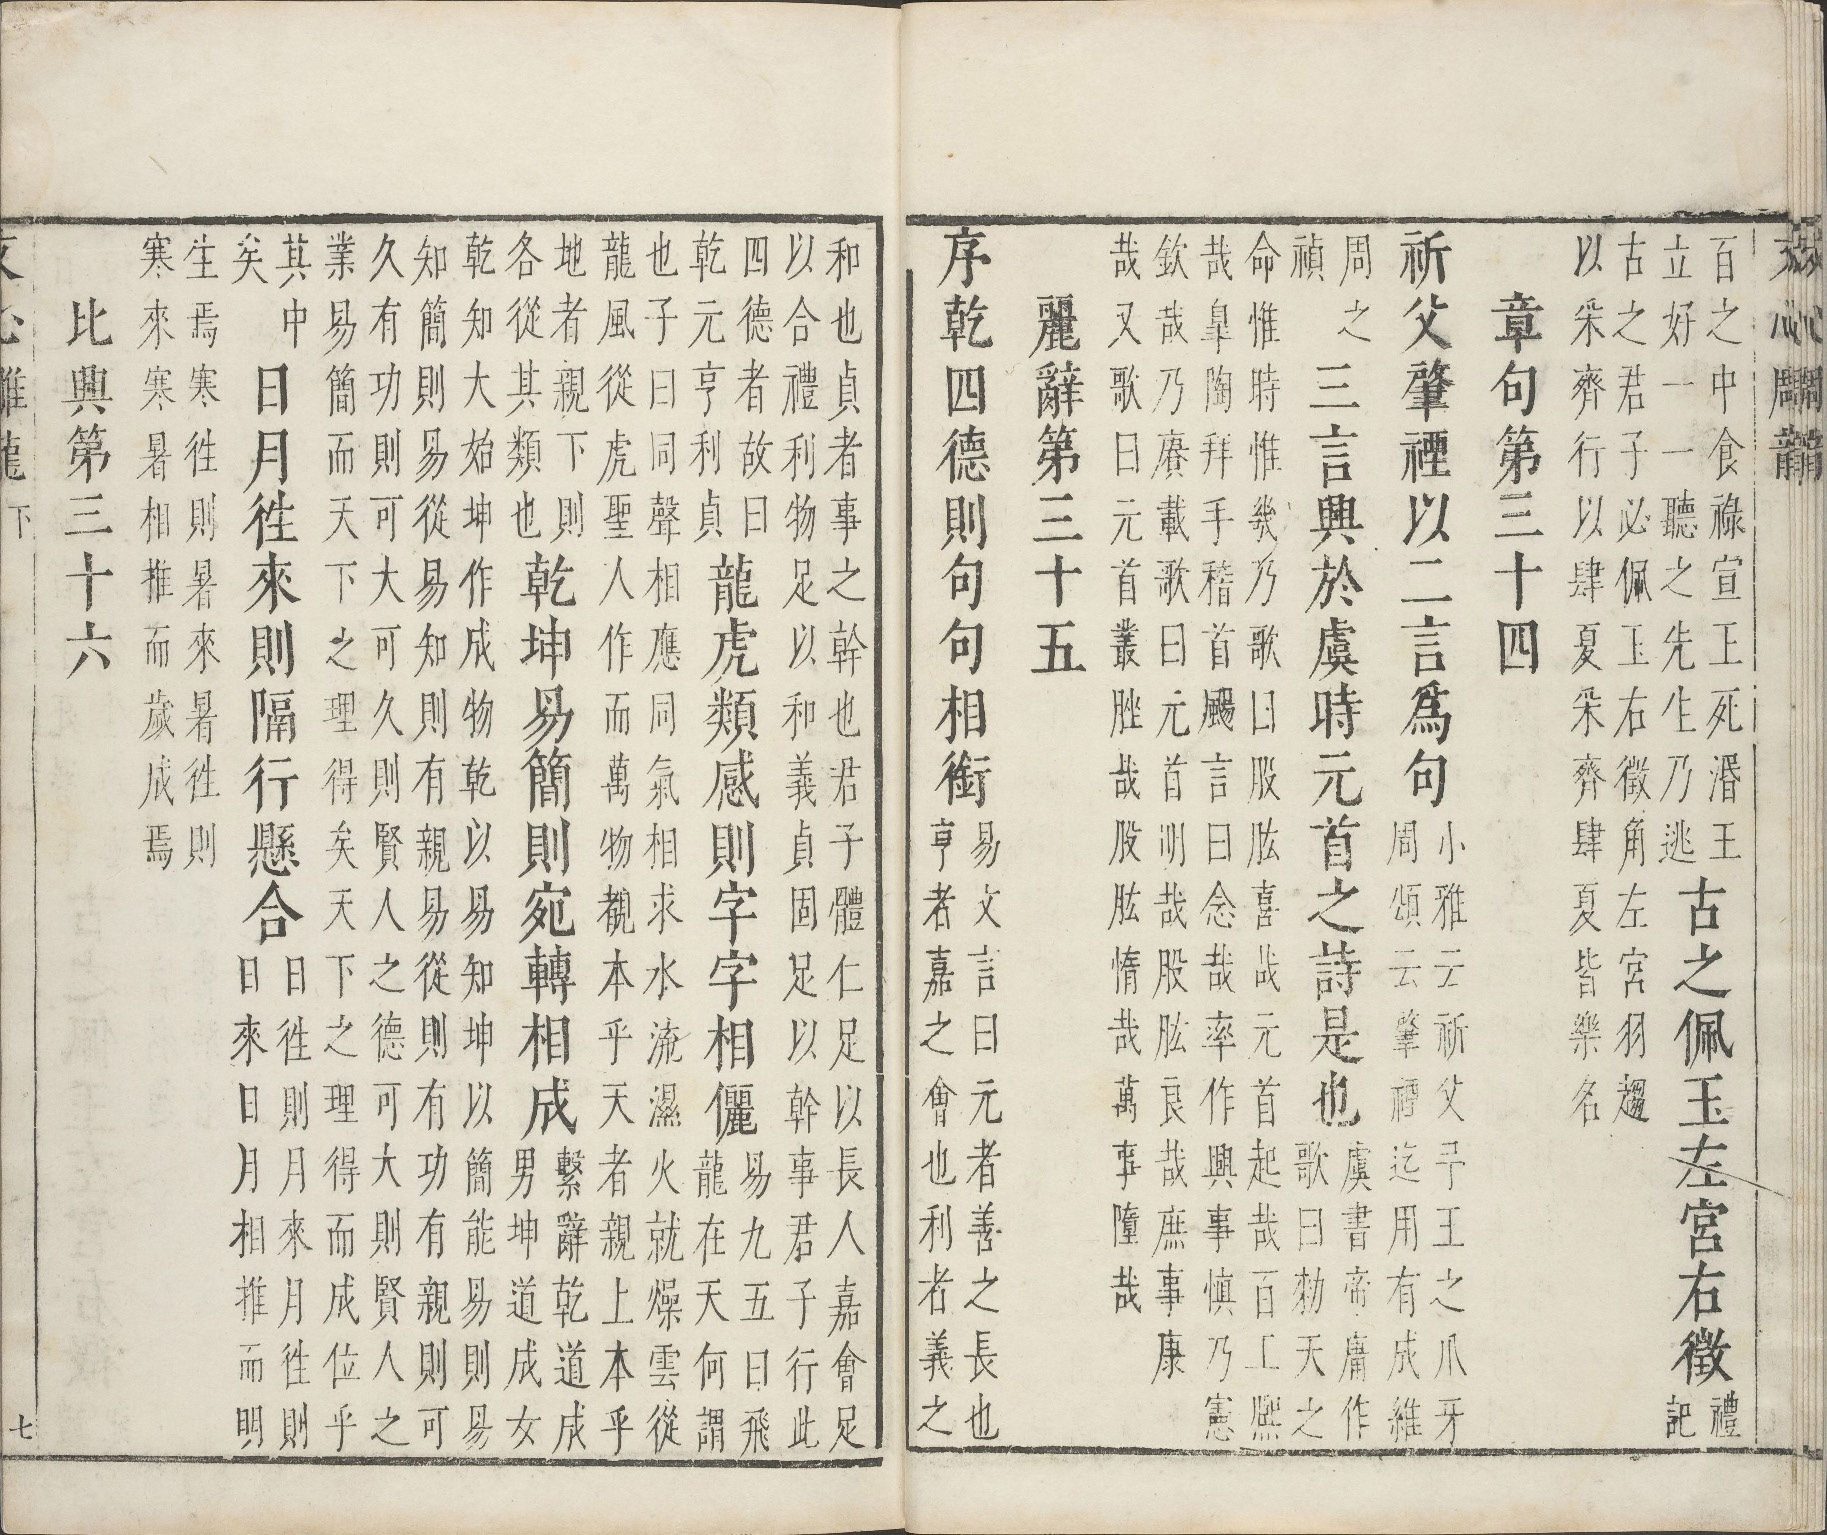 百之中食祿宣王死湣王
立好一一聽之先生乃逃
古之佩玉左宮右徵
禮
記
古之君子必佩玉右徵角左宮羽趨
以采齊行以肆夏采齊肆夏皆樂名
章句第三十四
祈父肇禋以二言爲句
小雅云祈父予王之爪牙
周頌云肇禋迄用有成維
周之
禎
三言興於虞時元首之詩是也
虞書帝庸作
歌曰勑天之
命惟時惟幾乃歌曰股肱喜哉元首起哉百工熙
哉臯陶拜手稽首颺言曰念哉率作興事愼乃憲
欽哉乃賡載歌曰元首明哉股肱良哉庶事康
哉又歌曰元首叢脞哉股肱惰哉萬事隳哉
麗辭第三十五
序乾四德則句句相銜
易文言曰元者善之長也
亨者嘉之會也利者義之
和也貞者事之幹也君子體仁足以長人嘉會足
以合禮利物足以和義貞固足以幹事君子行此
四德者故曰
乾元亨利貞
龍虎類感則字字相儷
易九五曰飛
龍在天何謂
也子曰同聲相應同氣相求水流濕火就燥雲從
龍風從虎聖人作而萬物覩本乎天者親上本乎
地者親下則
各從其類也
乾坤易簡則宛轉相成
繫辭乾道成
男坤道成女
乾知大始坤作成物乾以易知坤以簡能易則易
知簡則易從易知則有親易從則有功有親則可
久有功則可大可久則賢人之德可大則賢人之
業易簡而天下之理得矣天下之理得而成位乎
其中
矣
日月徃來則隔行懸合
日徃則月來月徃則
日來日月相推而明
生焉寒徃則暑來暑徃則
寒來寒暑相推而歲成焉
比興第三十六
下
七